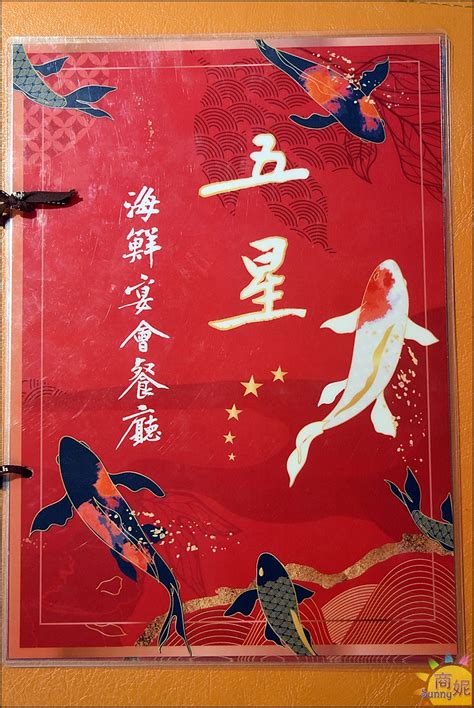 五星
海鮮宴會餐廳
商妮
Sunny